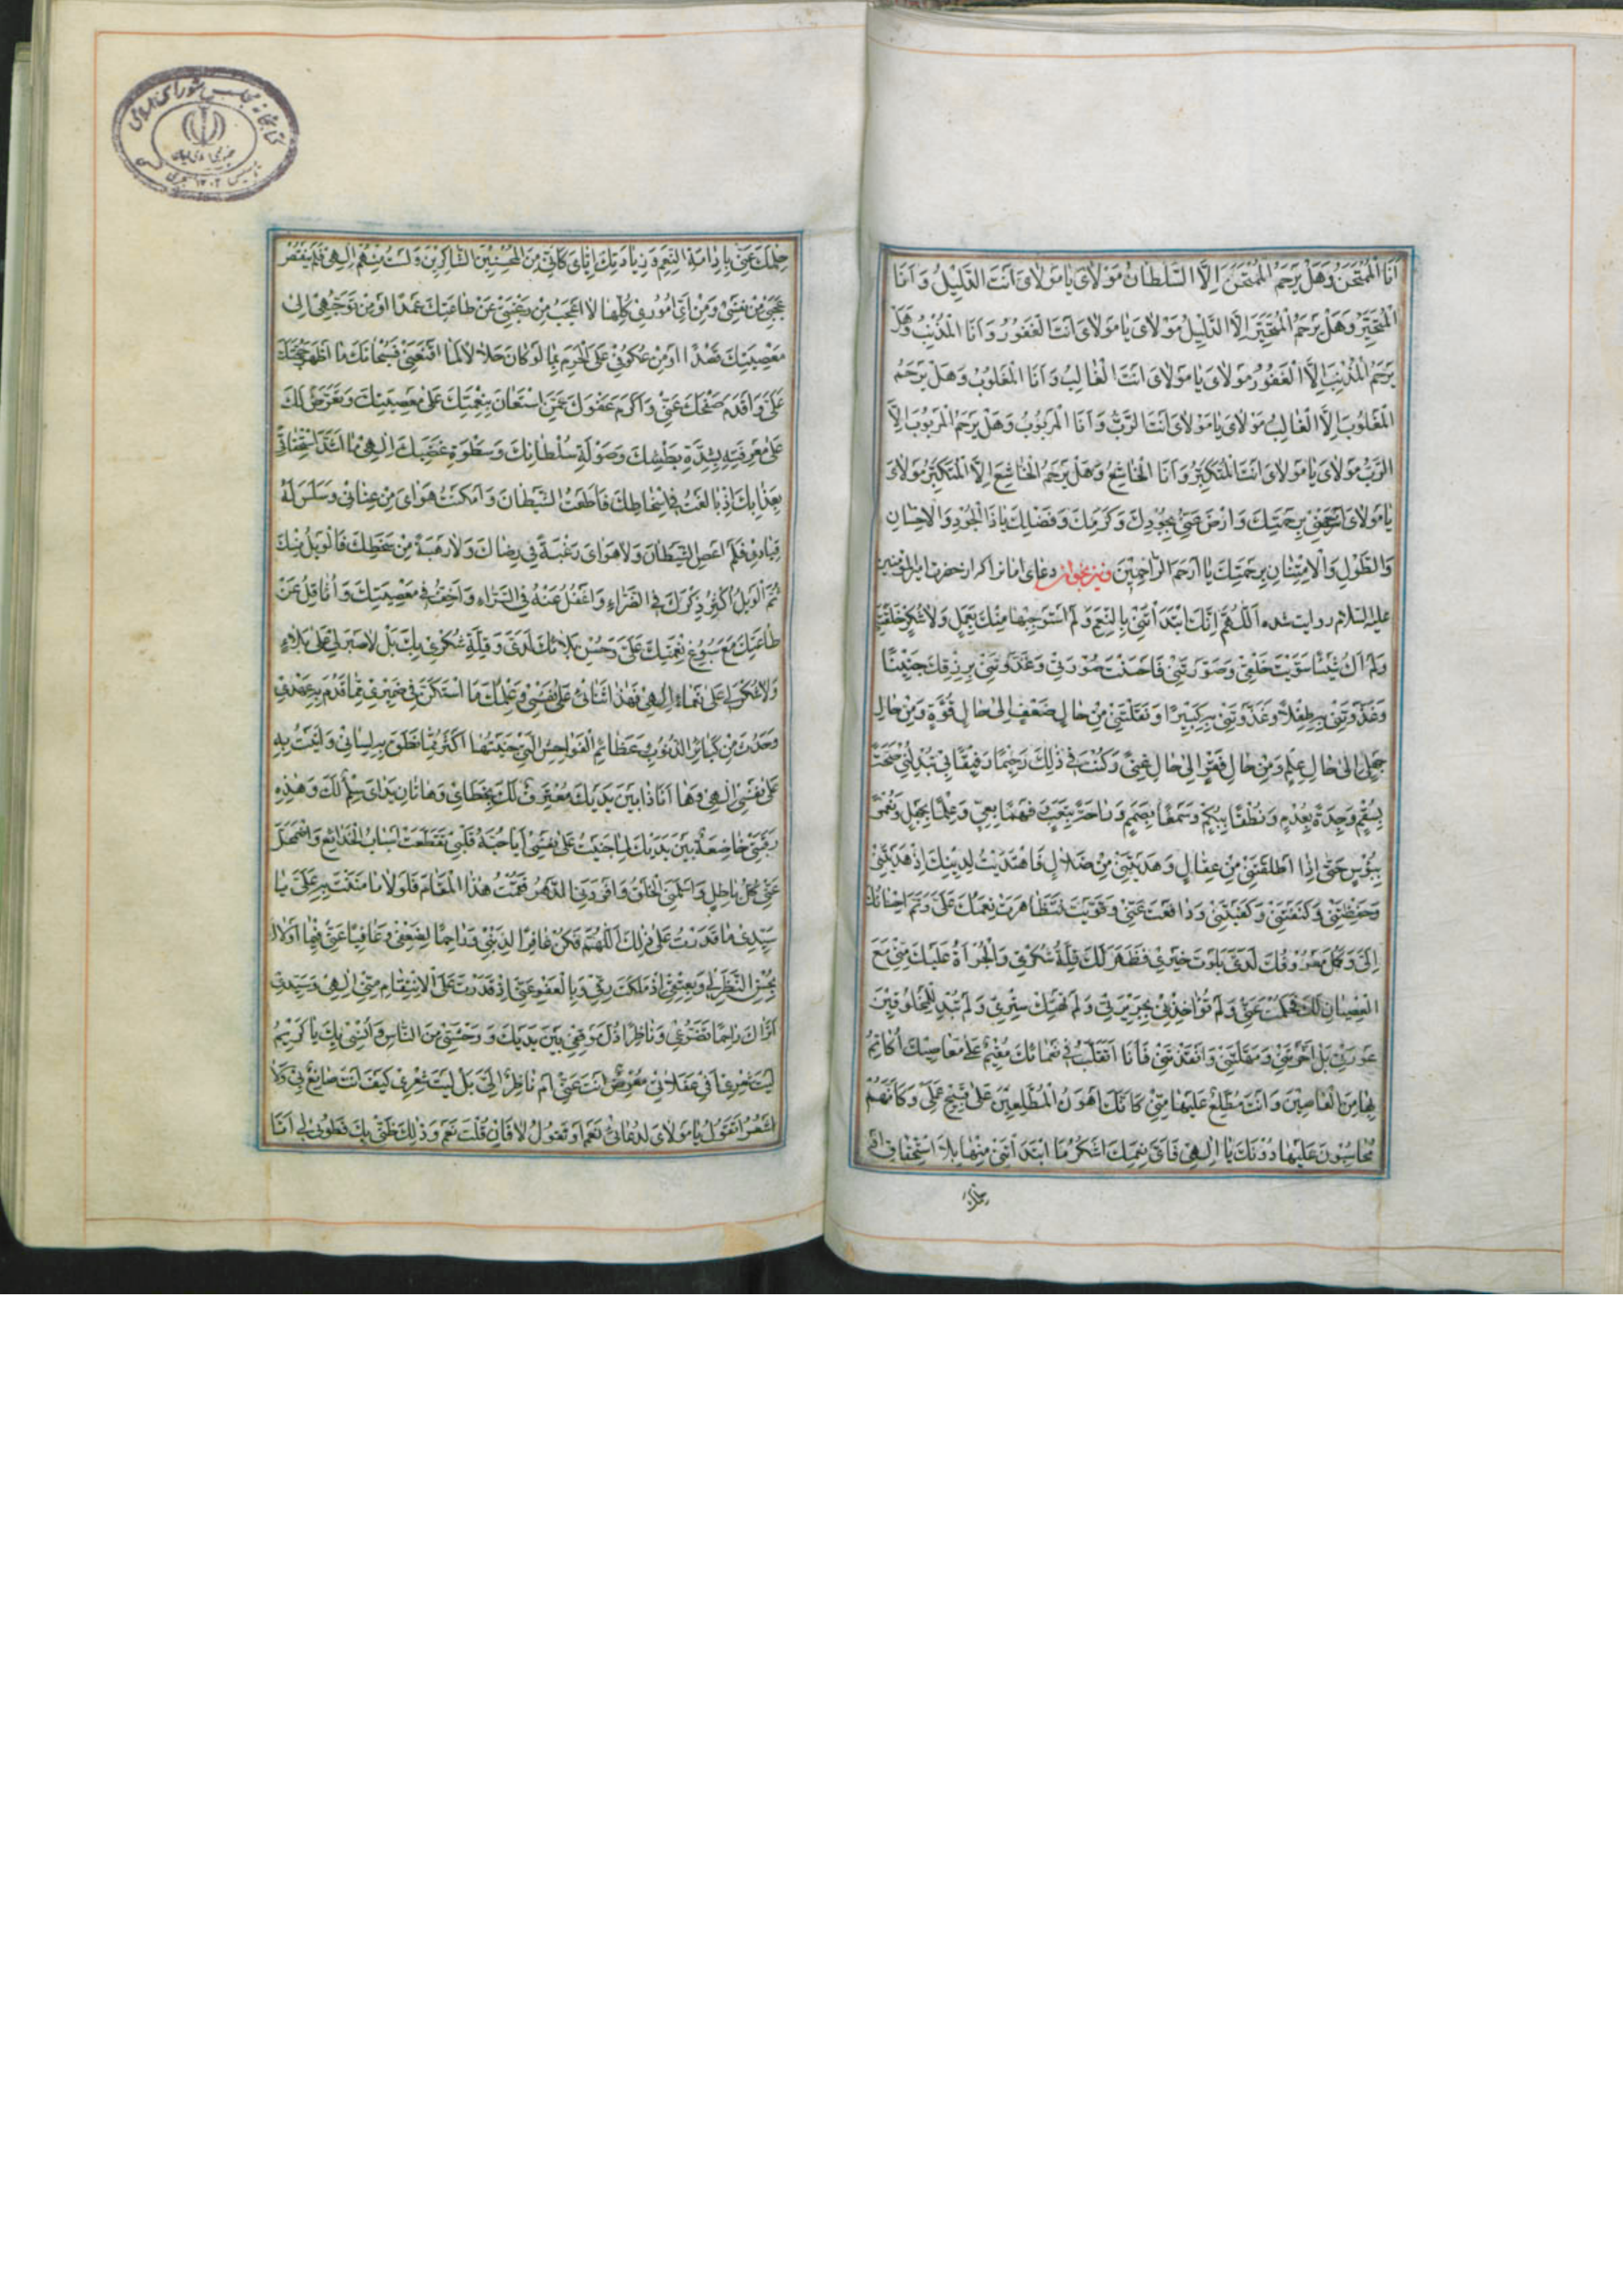 أَنَا الْمُمْتَحَنُ وَهَلْ يَرْحَمُ الْمُمْتَحَنَ إِلَّا السُّلْطَانُ مَوْلَايَ يَا مَوْلَايَ أَنْتَ الدَّلِيلُ وَأَنَا
الْمُتَحَيِّرُ وَهَلْ يَرْحَمُ الْمُتَحَيِّرَ إِلَّا الدَّلِيلُ مَوْلَايَ يَا مَوْلَايَ أَنْتَ الْغَفُورُ وَأَنَا الْمُذْنِبُ وَهَلْ
يَرْحَمُ الْمُذْنِبَ إِلَّا الْغَفُورُ مَوْلَايَ يَا مَوْلَايَ أَنْتَ الْغَالِبُ وَأَنَا الْمَغْلُوبُ وَهَلْ يَرْحَمُ
الْمَغْلُوبَ إِلَّا الْغَالِبُ مَوْلَايَ يَا مَوْلَايَ أَنْتَ الرَّبُّ وَأَنَا الْمَرْبُوبُ وَهَلْ يَرْحَمُ الْمَرْبُوبَ إِلَّا
الرَّبُّ مَوْلَايَ يَا مَوْلَايَ أَنْتَ الْمُتَكَبِّرُ وَأَنَا الْخَاشِعُ وَهَلْ يَرْحَمُ الْخَاشِعَ إِلَّا الْمُتَكَبِّرُ مَوْلَايَ
يَا مَوْلَايَ ارْحَمْنِي بِرَحْمَتِكَ وَارْضَ عَنِّي بِجُودِكَ وَكَرَمِكَ وَفَضْلِكَ يَا ذَا الْجُودِ وَالْإِحْسَانِ
وَالطَّوْلِ وَالْإِمْتِنَانِ بِرَحْمَتِكَ يَا أَرْحَمَ الرَّاحِمِينَ ونیز بخواند دعای امانرا که از حضرت امیرالمؤمنین
علیه السلام روایت شده اَللّٰهُمَّ إِنَّكَ ابْتَدَأْتَنِي بِالنِّعَمِ وَلَمْ أَسْتَوْجِبْهَا مِنْكَ بِعَمَلٍ وَلَا شُكْرٍ خَلَقْتَنِي
وَلَمْ أَكُ شَيْئًا سَوَّيْتَ خَلْقِي وَصَوَّرْتَنِي فَأَحْسَنْتَ صُورَتِي وَغَذَوْتَنِي بِرِزْقِكَ جَنِينًا
وَغَذَوْتَنِي بِهِ طِفْلًا وَغَذَوْتَنِي بِهِ كَبِيرًا وَنَقَلْتَنِي مِنْ حَالِ ضَعْفٍ إِلَى حَالِ قُوَّةٍ وَمِنْ حَالِ
جَهْلٍ إِلَى حَالِ عِلْمٍ وَمِنْ حَالِ فَقْرٍ إِلَى حَالِ غِنًى وَكُنْتَ فِي ذَلِكَ رَحِيمًا رَفِيقًا بِي تُبَدِّلُنِي صِحَّةً
بِسُقْمٍ وَجِدَةً بِعُدْمٍ وَنُطْقًا بِبُكْمٍ وَسَمْعًا بِصَمَمٍ وَرَاحَةً بِتَعَبٍ وَفَهْمًا بِعِيٍّ وَعِلْمًا بِجَهْلٍ وَنُعْمًى
بِبُؤْسٍ حَتَّى إِذَا أَطْلَقْتَنِي مِنْ عِقَالٍ وَهَدَيْتَنِي مِنْ ضَلَالٍ فَاهْتَدَيْتُ لِدِينِكَ إِذْ هَدَيْتَنِي
وَحَفِظْتَنِي وَكَنَفْتَنِي وَكَفَيْتَنِي وَدَافَعْتَ عَنِّي وَقَوَّيْتَ فَتَظَاهَرَتْ نِعَمُكَ عَلَيَّ وَتَمَّ إِحْسَانُكَ
إِلَيَّ وَكَمُلَ مَعْرُوفُكَ لَدَيَّ بَلَوْتَ خَيْرِي فَظَهَرَ لَكَ قِلَّةُ شُكْرِي وَالْجُرْأَةُ عَلَيْكَ مِنِّي مَعَ
الْعِصْيَانِ لَكَ فَحَلُمْتَ عَنِّي وَلَمْ تُؤَاخِذْنِي بِجَرِيرَتِي وَلَمْ تَهْتِكْ سِتْرِي وَلَمْ تُبْدِ لِلْمَخْلُوقِينَ
عَوْرَتِي بَلْ أَخَّرْتَنِي وَمَهَّلْتَنِي وَأَنْقَذْتَنِي فَأَنَا أَتَقَلَّبُ فِي نَعْمَائِكَ مُقِيمٌ عَلَى مَعَاصِيكَ أُكَاتِمُ
بِهَا مِنَ الْعَاصِينَ وَأَنْتَ مُطَّلِعٌ عَلَيْهَا مِنِّي كَأَنَّكَ أَهْوَنُ الْمُطَّلِعِينَ عَلَى قَبِيحِ عَمَلِي وَكَأَنَّهُمْ
مُحَاسِبُونَ عَلَيْهَا دُونَكَ يَا إِلٰهِي فَأَيَّ نِعَمِكَ أَشْكُرُ مَا ابْتَدَأْتَنِي مِنْهَا بِلَا اسْتِحْقَاقٍ أَمْ
حِلْمَكَ
حِلْمَكَ عَنِّي بِإِدَامَةِ النِّعَمِ وَزِيَادَتِكَ إِيَّايَ كَأَنِّي مِنَ الْمُحْسِنِينَ الشَّاكِرِينَ وَلَسْتُ مِنْهُمْ إِلٰهِي فَلَمْ يَنْقَضِ
عَجَبِي مِنْ نَفْسِي وَمِنْ أَيِّ أُمُورِي كُلِّهَا لَا أَعْجَبُ مِنْ رَغْبَتِي عَنْ طَاعَتِكَ عَمْدًا أَوْ مِنْ تَوَجُّهِي إِلَى
مَعْصِيَتِكَ قَصْدًا أَوْ مِنْ عُكُوفِي عَلَى الْحَرَامِ بِمَا لَوْ كَانَ حَلَالًا لَمَا أَقْنَعَنِي فَسُبْحَانَكَ مَا أَظْهَرَ حُجَّتَكَ
عَلَيَّ وَأَقْدَمَ صَفْحَكَ عَنِّي وَأَكْرَمَ عَفْوَكَ عَمَّنِ اسْتَعَانَ بِنِعْمَتِكَ عَلَى مَعْصِيَتِكَ وَتَعَرَّضَ لَكَ
عَلَى مَعْرِفَتِهِ بِشِدَّةِ بَطْشِكَ وَصَوْلَةِ سُلْطَانِكَ وَسَطْوَةِ غَضَبِكَ إِلٰهِي مَا أَشَدَّ اسْتِخْفَافِي
بِعَذَابِكَ إِذْ بَالَغْتُ فِي إِسْخَاطِكَ فَأَطَعْتُ الشَّيْطَانَ وَأَمْكَنْتُ هَوَايَ مِنْ عِنَانِي وَسَلَسَ لَهُ
قِيَادِي فَلَمْ أَعْصِ الشَّيْطَانَ وَلَا هَوَايَ رَغْبَةً فِي رِضَاكَ وَلَا رَهْبَةً مِنْ سَخَطِكَ فَالْوَيْلُ مِنْكَ
ثُمَّ الْوَيْلُ أُكْثِرُ ذِكْرَكَ فِي الضَّرَّاءِ وَأَغْفُلُ عَنْهُ فِي السَّرَّاءِ وَأَخِفُّ فِي مَعْصِيَتِكَ وَأَتَثَاقَلُ عَنْ
طَاعَتِكَ مَعَ سُبُوغِ نِعْمَتِكَ عَلَيَّ وَحُسْنِ بَلَائِكَ لَدَيَّ وَقِلَّةِ شُكْرِي بَلْ لَا صَبْرَ لِي عَلَى بَلَاءٍ
وَلَا شُكْرَ لِي عَلَى نَعْمَاءَ إِلٰهِي فَهَذَا ثَنَائِي عَلَى نَفْسِي وَعِلْمُكَ بِمَا اسْتَكَنَّ فِي ضَمِيرِي مِمَّا قَدُمَ بِهِ عَهْدِي
وَحَدَثَ مِنْ كَبَائِرِ الذُّنُوبِ وَعَظَائِمِ الْفَوَاحِشِ الَّتِي جَنَيْتُهَا أَكْثَرُ مِمَّا نَطَقَ بِهِ لِسَانِي وَأَتَيْتُ بِهِ
عَلَى نَفْسِي إِلٰهِي وَهَا أَنَا ذَا بَيْنَ يَدَيْكَ مُعْتَرِفٌ لَكَ بِخَطَايَ وَهَاتَانِ يَدَايَ سِلْمٌ لَكَ وَهَذِهِ
رَقَبَتِي خَاضِعَةٌ بَيْنَ يَدَيْكَ لِمَا جَنَيْتُ عَلَى نَفْسِي أَيَا حُبَّةَ قَلْبِي تَقَطَّعَتْ أَسْبَابُ الْخَدَائِعِ وَاضْمَحَلَّ
عَنِّي كُلُّ بَاطِلٍ وَأَسْلَمَنِي الْخَلْقُ وَأَفْرَدَنِي الدَّهْرُ فَقُمْتُ هَذَا الْمَقَامَ فَلَوْلَا مَا مَنَنْتَ بِهِ عَلَيَّ يَا
سَيِّدِي مَا قَدَرْتُ عَلَى ذَلِكَ اللّٰهُمَّ فَكُنْ غَافِرًا لِذَنْبِي وَرَاحِمًا لِضَعْفِي وَعَافِيًا عَنِّي فَمَا أَوْلَاكَ
بِحُسْنِ النَّظَرِ لِي وَبِعِتْقِي إِذْ مَلَكْتَ رِقِّي وَبِالْعَفْوِ عَنِّي إِذْ قَدَرْتَ عَلَى الْإِنْتِقَامِ مِنِّي إِلٰهِي وَسَيِّدِي
أَتُرَاكَ رَاحِمًا تَضَرُّعِي وَنَاظِرًا ذُلَّ مَوْقِفِي بَيْنَ يَدَيْكَ وَوَحْشَتِي مِنَ النَّاسِ وَأُنْسِي بِكَ يَا كَرِيمُ
لَيْتَ شِعْرِي أَفِي غَفَلَاتِي مُعْرِضٌ أَنْتَ عَنِّي أَمْ نَاظِرٌ إِلَيَّ بَلْ لَيْتَ شِعْرِي كَيْفَ أَنْتَ صَانِعٌ بِي وَلَا
أَشْعُرُ أَتَقُولُ يَا مَوْلَايَ لِدُعَائِي نَعَمْ أَوْ تَقُولُ لَا فَإِنْ قُلْتَ نَعَمْ وَذَلِكَ ظَنِّي بِكَ فَطُوبَى لِي أَنَا